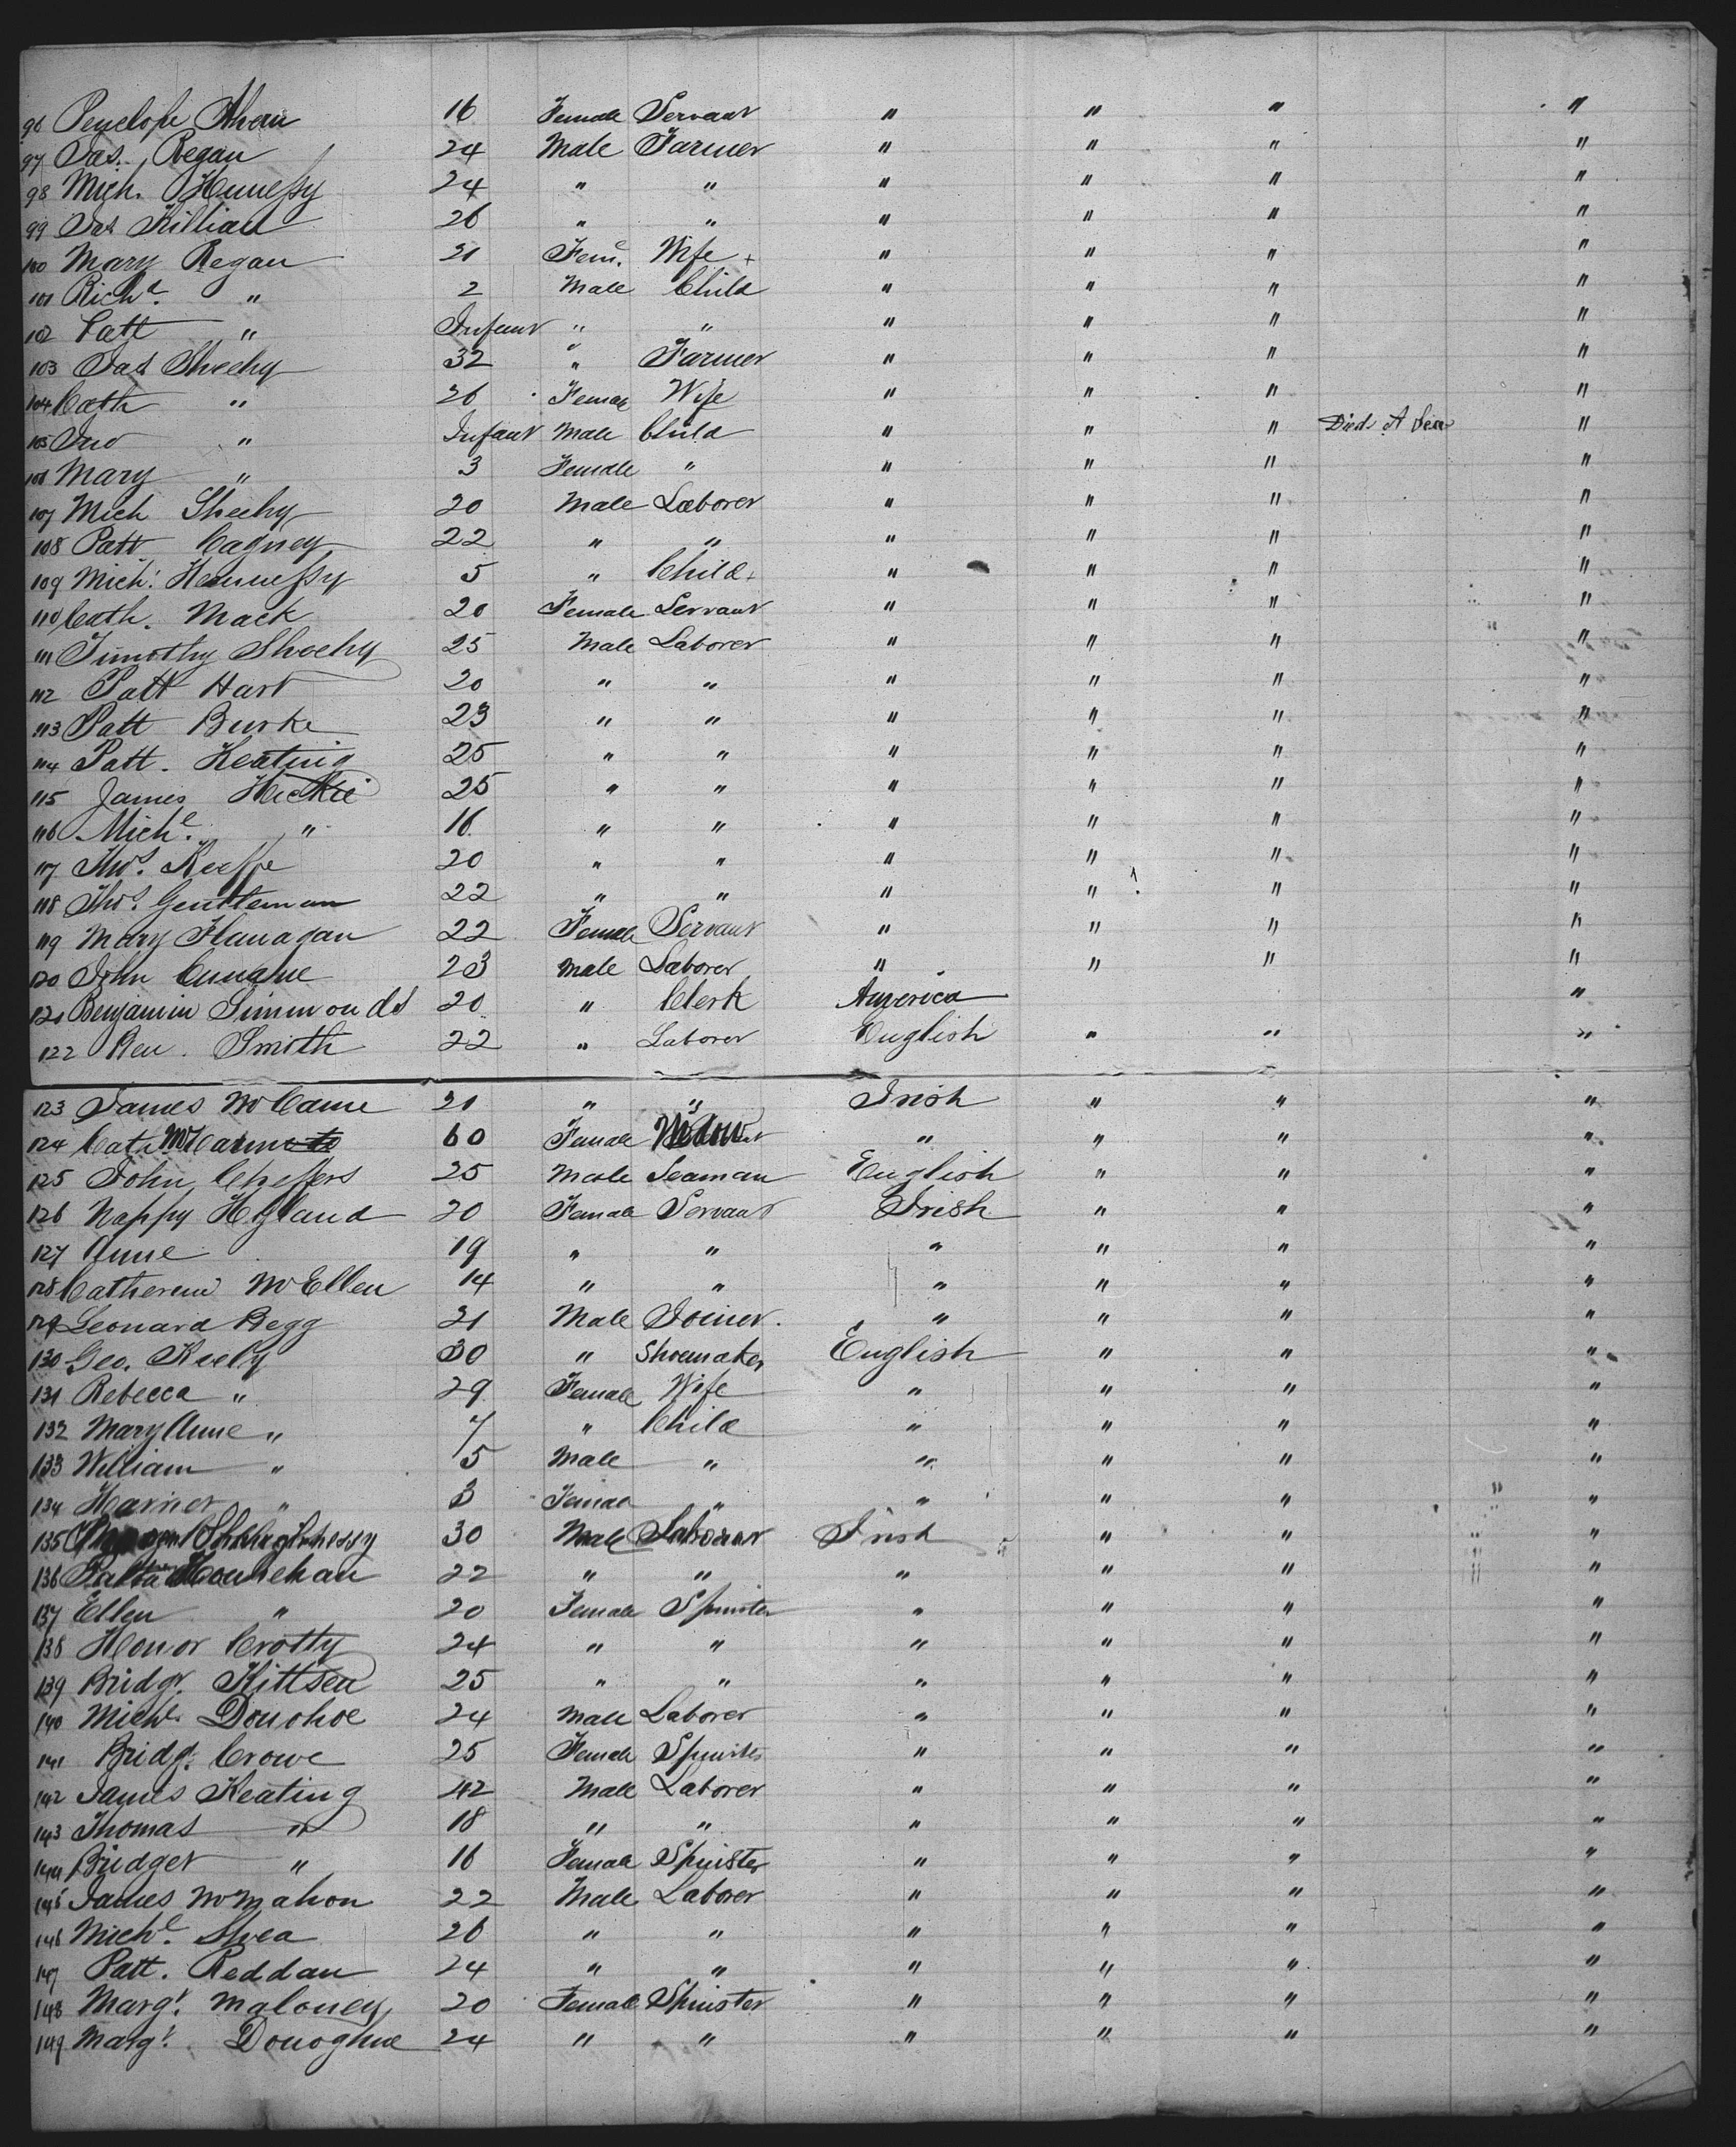 96 Penelope Ahern 16 Female Servant " " " "
97 Jas. Regan 24 Male Farmer " " " "
98 Mich. Hennessy 24 " " " " " "
99 Jas Killian 26 " " " " " "
100 Mary Regan 21 Fem. Wife + " " " "
101 Richd. " 2 Male Child " " " "
102 Patt " Infant " " " " " "
103 Jas Sheehy 32 " Farmer " " " "
104 Cath " 26 Female Wife " " " "
105 Jno " Infant Male Child " " " Died At Sea "
106 Mary " 3 Female " " " " "
107 Mich Sheehy 20 Male Laborer " " " "
108 Patt Cagney 22 " " " " " "
109 Mich. Hennessy 5 " Child + " " " "
110 Cath. Mack 20 Female Servant " " " "
111 Timothy Sheehy 25 Male Laborer " " " "
112 Patt Hart 20 " " " " " "
113 Patt Burke 23 " " " " " "
114 Patt. Keating 25 " " " " " "
115 James Hickie 25 " " " " " "
116 Michl. " 16 " " " " " "
117 Thos. Keeffe 20 " " " " " "
118 Thos. Gentleman 22 " " " " " "
119 Mary Flanagan 22 Female Servant " " " "
120 John Cunane 23 Male Laborer " " " "
121 Benjamin Simmonds 20 " Clerk America "
122 Ben. Smith 22 " Laborer English " " "
123 James McCame 21 " " Irish " " "
124 Cath 60 Female Widow " " " "
125 John Cheffers 25 Male Seaman English " " "
126 Nappy Hyland 20 Female Servant Irish " " "
127 Anne 19 " " " " " "
128 Catherine McEllen 14 " " " " " "
129 Leonard Begg 21 Male Joiner. " " " "
130 Geo. Keely 30 " Shoemaker English " " "
131 Rebecca " 29 Female Wife " " " "
132 Mary Anne " 7 " Child " " " "
133 William " 5 Male " " " " "
134 Harriet " 3 Female " " " " "
135 30 Male Laborer Irish " " "
136 Hounehan 22 " " " " " "
137 Ellen " 20 Female Spinster " " " "
138 Honor Crotty 24 " " " " " "
139 Bridgt. Kittsen 25 " " " " " "
140 Michl. Donohoe 24 Male Laborer " " " "
141 Bridgt. Crowe 25 Female Spinster " " " "
142 James Keating 42 Male Laborer " " " "
143 Thomas " 18 " " " " " "
144 Bridget " 16 Female Spinster " " " "
145 James McMahon 22 Male Laborer " " " "
146 Michl. Shea 26 " " " " " "
147 Patt. Reddan 24 " " " " " "
148 Margt. Maloney 20 Female Spinster " " " "
149 Margt. Donoghue 24 " " " " " "